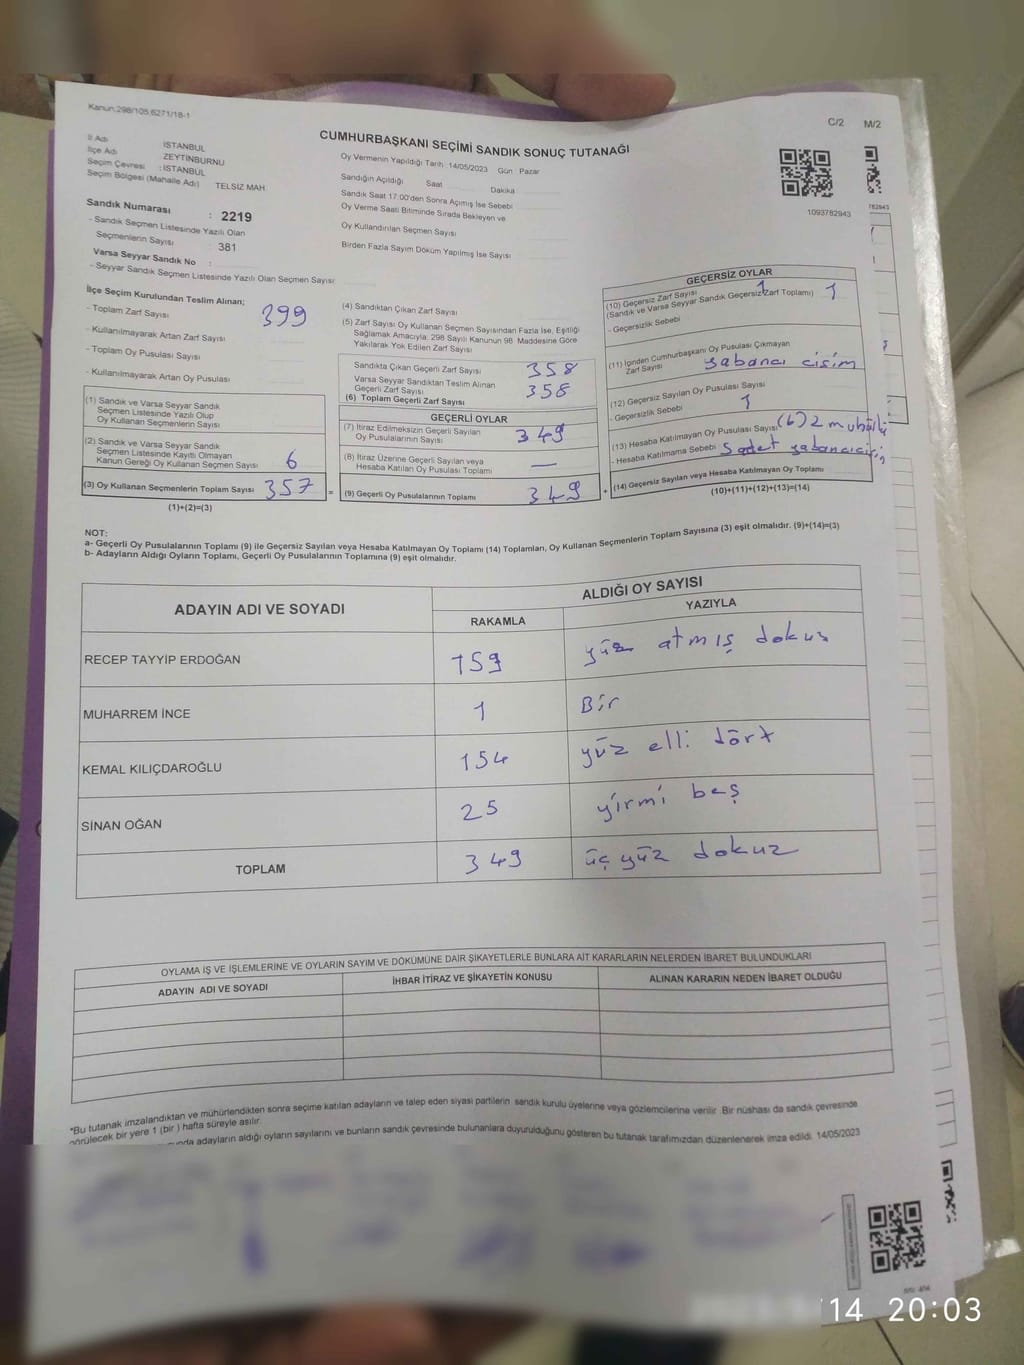 Kanun:298/105,6271/18-1
C/2 M/2
CUMHURBAŞKANI SEÇİMİ SANDIK SONUÇ TUTANAĞI
İl Adı İSTANBUL
İlçe Adı ZEYTİNBURNU
Seçim Çevresi : İSTANBUL
Seçim Bölgesi (Mahalle Adı) TELSİZ MAH.
Sandık Numarası : 2219
- Sandık Seçmen Listesinde Yazılı Olan
Seçmenlerin Sayısı : 381
Varsa Seyyar Sandık No :
- Seyyar Sandık Seçmen Listesinde Yazılı Olan Seçmen Sayısı
Oy Vermenin Yapıldığı Tarih 14/05/2023 Gün Pazar
Sandığın Açıldığı Saat Dakika
Sandık Saat 17:00'den Sonra Açımış İse Sebebi
Oy Verme Saati Bitiminde Sırada Bekleyen ve
Oy Kullandırılan Seçmen Sayısı
Birden Fazla Sayım Döküm Yapılmış İse Sayısı
1093782943
İlçe Seçim Kurulundan Teslim Alınan;
- Toplam Zarf Sayısı 399
- Kullanılmayarak Artan Zarf Sayısı
- Toplam Oy Pusulası Sayısı
- Kullanılmayarak Artan Oy Pusulası
(1) Sandık ve Varsa Seyyar Sandık
Seçmen Listesinde Yazılı Olup
Oy Kullanan Seçmenlerin Sayısı
(2) Sandık ve Varsa Seyyar Sandık
Seçmen Listesinde Kayıtlı Olmayan
Kanun Gereği Oy Kullanan Seçmen Sayısı 6
(3) Oy Kullanan Seçmenlerin Toplam Sayısı 357 =
(1)+(2)=(3)
(4) Sandıktan Çıkan Zarf Sayısı
(5) Zarf Sayısı Oy Kullanan Seçmen Sayısından Fazla İse, Eşitliği
Sağlamak Amacıyla; 298 Sayılı Kanunun 98. Maddesine Göre
Yakılarak Yok Edilen Zarf Sayısı
Sandıkta Çıkan Geçerli Zarf Sayısı 358
Varsa Seyyar Sandıktan Teslim Alınan
Geçerli Zarf Sayısı 358
(6) Toplam Geçerli Zarf Sayısı
GEÇERLİ OYLAR
(7) İtiraz Edilmeksizin Geçerli Sayılan
Oy Pusulalarının Sayısı 349
(8) İtiraz Üzerine Geçerli Sayılan veya
Hesaba Katılan Oy Pusulası Toplamı —
(9) Geçerli Oy Pusulalarının Toplamı 349 +
GEÇERSİZ OYLAR
(10) Geçersiz Zarf Sayısı 1
(Sandık ve Varsa Seyyar Sandık Geçersiz Zarf Toplamı) 1
- Geçersizlik Sebebi
(11) İçinden Cumhurbaşkanı Oy Pusulası Çıkmayan
Zarf Sayısı yabancı cisim
(12) Geçersiz Sayılan Oy Pusulası Sayısı
- Geçersizlik Sebebi 1
(13) Hesaba Katılmayan Oy Pusulası Sayısı (6) 2
- Hesaba Katılmama Sebebi
(14) Geçersiz Sayılan veya Hesaba Katılmayan Oy Toplamı
(10)+(11)+(12)+(13)=(14)
NOT:
a- Geçerli Oy Pusulalarının Toplamı (9) ile Geçersiz Sayılan veya Hesaba Katılmayan Oy Toplamı (14) Toplamları, Oy Kullanan Seçmenlerin Toplam Sayısına (3) eşit olmalıdır. (9)+(14)=(3)
b- Adayların Aldığı Oyların Toplamı, Geçerli Oy Pusulalarının Toplamına (9) eşit olmalıdır.
ADAYIN ADI VE SOYADI
ALDIĞI OY SAYISI
RAKAMLA YAZIYLA
RECEP TAYYİP ERDOĞAN 159 yüz atmış dokuz
MUHARREM İNCE 1 Bir
KEMAL KILIÇDAROĞLU 154 yüz elli dört
SİNAN OĞAN 25 yirmi beş
TOPLAM 349 üç yüz dokuz
OYLAMA İŞ VE İŞLEMLERİNE VE OYLARIN SAYIM VE DÖKÜMÜNE DAİR ŞİKAYETLERLE BUNLARA AİT KARARLARIN NELERDEN İBARET BULUNDUKLARI
ADAYIN ADI VE SOYADI İHBAR İTİRAZ VE ŞİKAYETİN KONUSU ALINAN KARARIN NEDEN İBARET OLDUĞU
*Bu tutanak imzalandıktan ve mühürlendikten sonra seçime katılan adayların ve talep eden siyasi partilerin sandık kurulu üyelerine veya gözlemcilerine verilir. Bir nüshası da sandık çevresinde
görülecek bir yere 1 (bir) hafta süreyle asılır.
adayların aldığı oyların sayılarını ve bunların sandık çevresinde bulunanlara duyurulduğunu gösteren bu tutanak tarafımızdan düzenlenerek imza edildi. 14/05/2023
/14 20:03